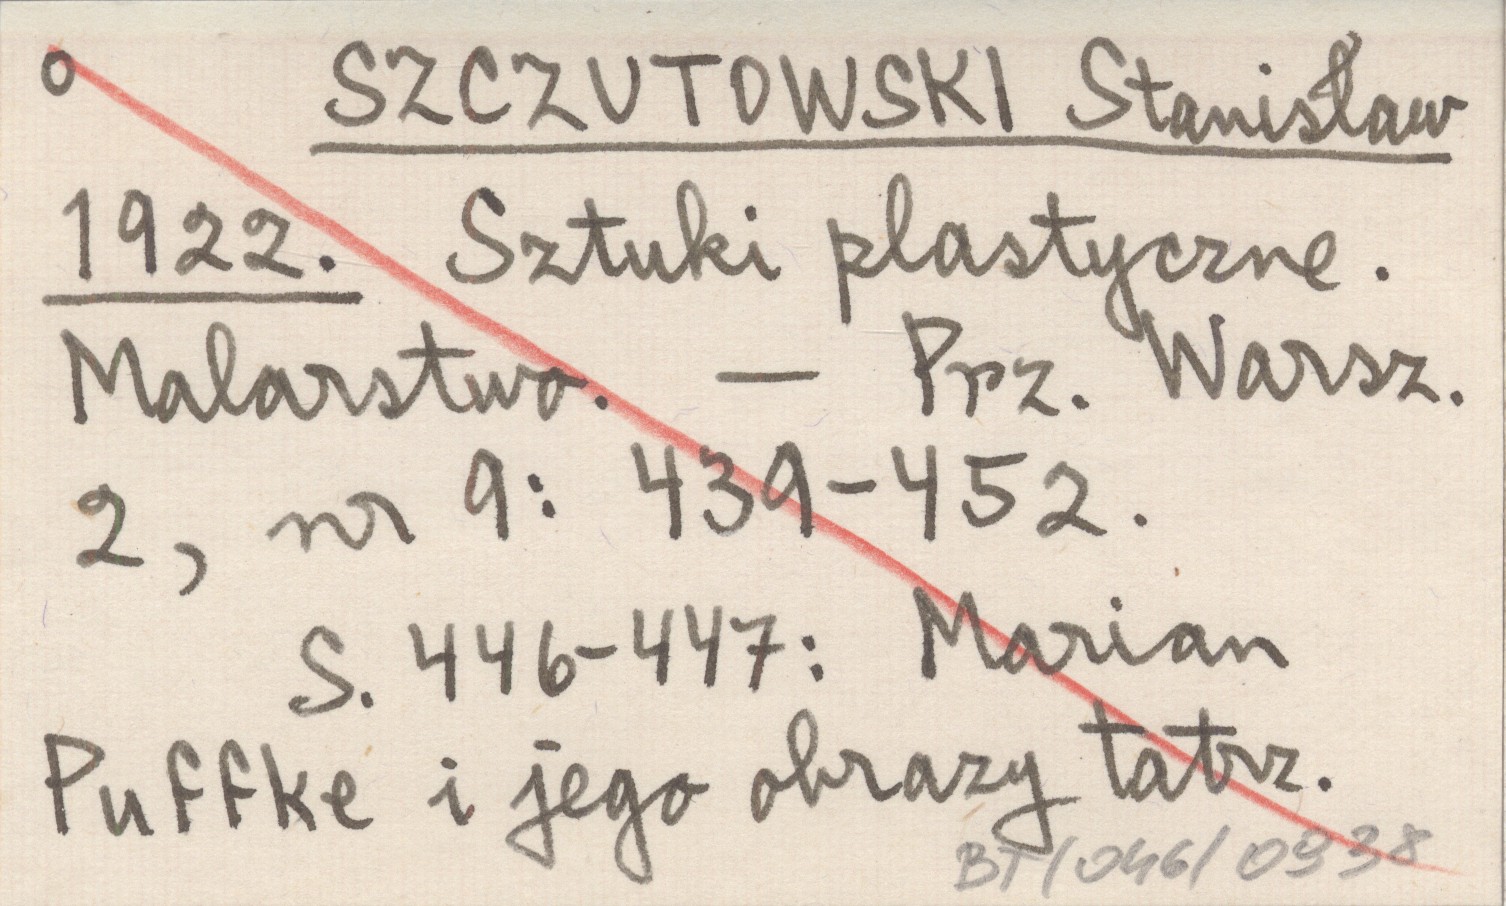 o SZCZUTOWSKI Stanisław
1922. Sztuki plastyczne.
Malarstwo. — Prz. Warsz.
2, nr 9: 439-452.
S. 446-447: Marian
Puffke i jego obrazy tatrz.
BT/046/0938